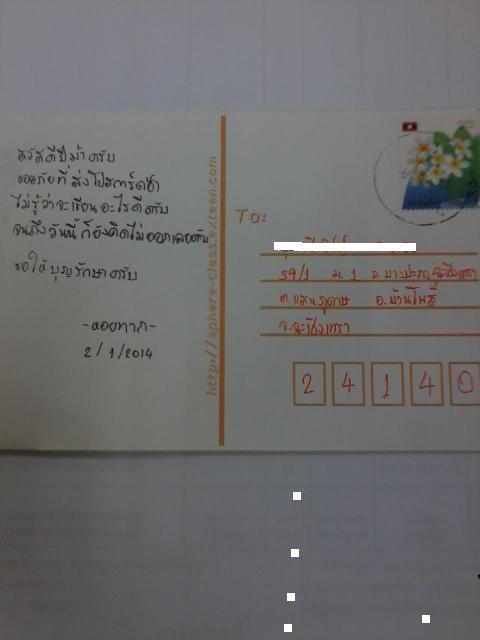 สวัสดีปีม้าครับ
ขออภัยที่ส่งโปสการ์ดช้า
ไม่รู้ว่าจะเขียนอะไรดีครับ
จนถึงวันนี้ก็ยังคิดไม่ออกเลยครับ
ขอให้บุญรักษาครับ
-หอยทาก-
2/1/2014
TO:
39/1 ม.1 ถ.บางปะกง-ฉะเชิงเทรา
ต.แสนภูดาษ อ.บ้านโพธิ์
จ.ฉะเชิงเทรา
2 4 1 4 0